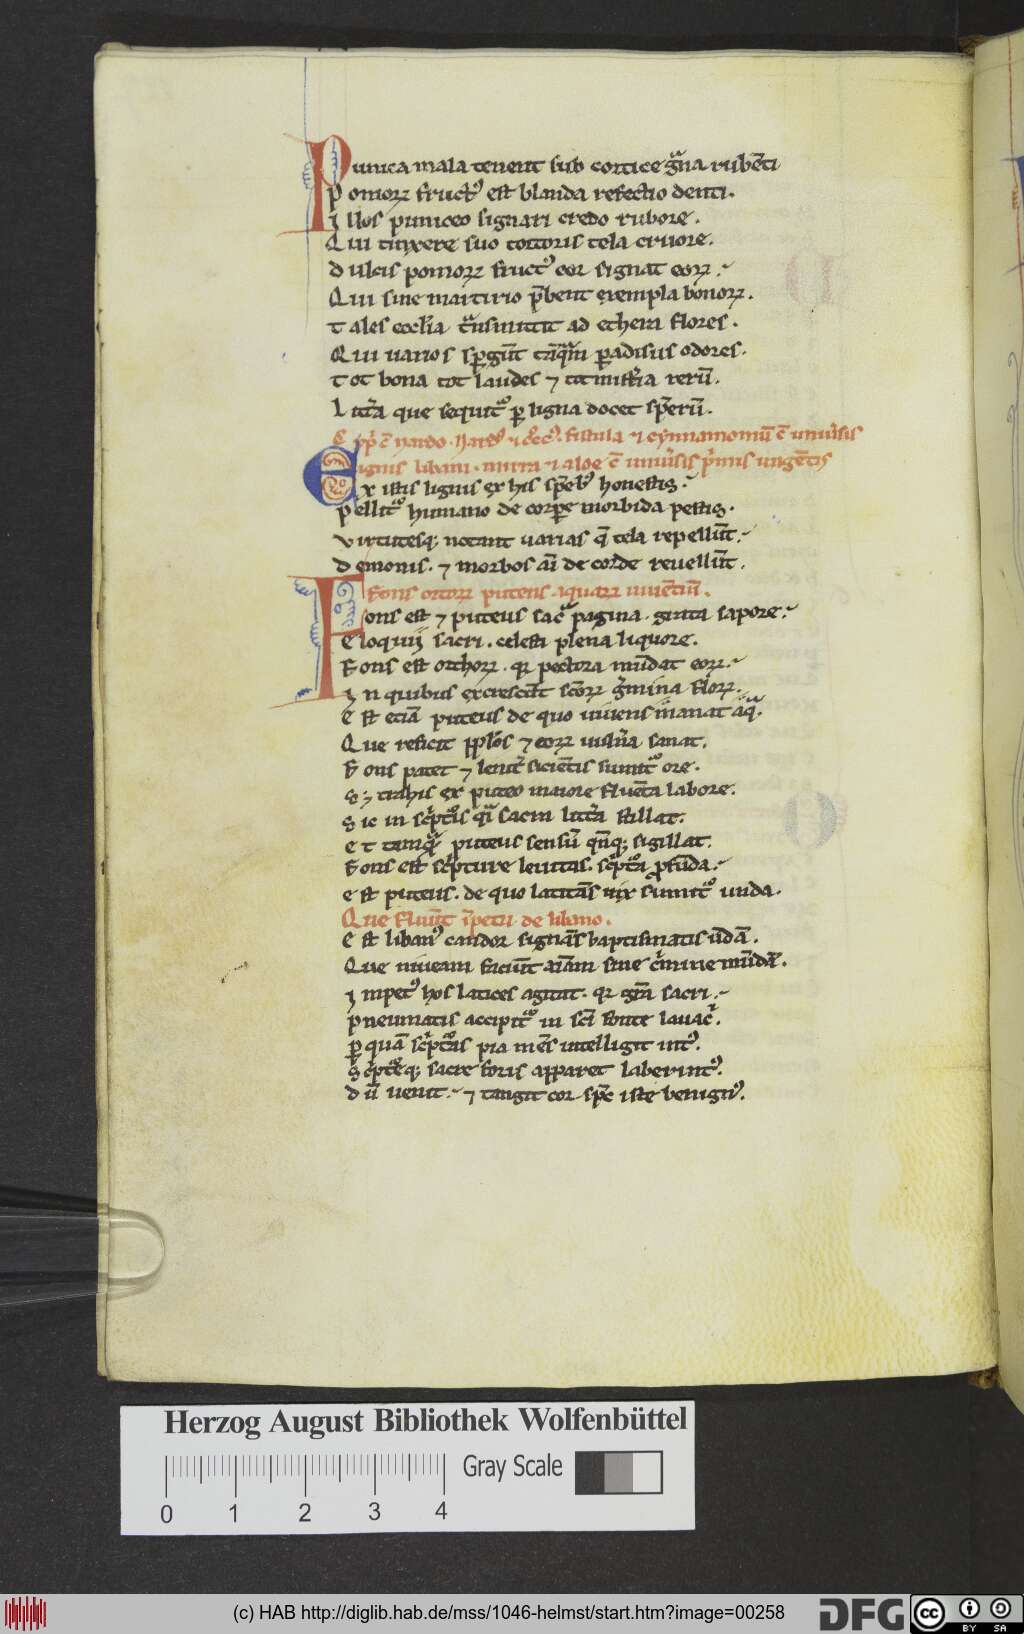 Punica mala tenent sub cortice gͣna rubēti
Pomoꝝ fruct᷒ est blanda refectio denti.
Illos puniceo signari credo rubore.
Qui tinxere suo tortoris tela cruore.
Dulcis pomoꝝ fruct᷒ cor signat eoꝝ.
Qui sine martirio p̄bent exempla bonoꝝ.
Tales eccl̄ia tͣnsmittit ad ethera flores.
Qui uarios sꝑgūt tāqͣm ꝑadisus odores.
Tot bona tot laudes ⁊ tot mist̄ia rerū.
Litt̄a que sequit᷑ ꝑ ligna docet sꝑerū.
nardo. Nard᷒ ⁊ c᷒oc᷒. fistula ⁊ cynnamomū c̄ uniu̾sis
lignis libani. mirra ⁊ aloe c̄ uniu̾sis p̍mis ungētis
Ex istis lignis ex his sp̄eb᷒ honestis.
Pellit᷑ humano de corꝑe morbida pestis.
Virtutesqꝫ notant uarias q̄ tela repellūt.
Demonis. ⁊ morbos aī de corde reuellūt.
Fons ortoꝝ puteus aquaꝝ uiuētiū.
Fons est ⁊ puteus sac̄ pagina. grata sapore.
Eloquij sacri. celesti plena liquore.
Fons est orthoꝝ. qꝛ pectora mūdat eoꝝ.
In quibus excrescūt sc̄oꝝ g̾mina floꝝ.
Est etiā puteus de quo uiuens manat aq̄.
Que reficit pplōs ⁊ eoꝝ uuln̄a sanat.
Fons patet ⁊ lenit̾ sicientis sumit᷑ ore.
Sꝫ trahis ex puteo maiore fluēta labore.
Sic in sc̍pt᷑is qͣī sacra litt̄a stillat.
Et tanqͣ puteus sensū qn̄qꝫ sigillat.
Fons est sc̍pture leuitas. sc̍pt᷑a ꝓfūda.
Est puteus. de quo latitās uix sumit᷑ unda.
Que fluūt īpetu de libano.
Est liban᷒ candor signās baptismatis ūdā.
Que niueam faciūt aīam sine c̍mine mūdā.
Inpet᷒ hos latices agitat. qꝛ gr̄a sacri.
Pneumatis accipit᷑ in sc̄i fonte lauac̍.
Per quā sc̍pt᷑as pia mēs intelligit int᷒.
Sc̍pt᷑eqꝫ sacre foris apparet laberint᷒.
Dū uenit. ⁊ tangit cor sp̄c iste benign᷒.
Herzog August Bibliothek Wolfenbüttel
Gray Scale
0 1 2 3 4
(c) HAB http://diglib.hab.de/mss/1046-helmst/start.htm?image=00258
DFG cc BY SA